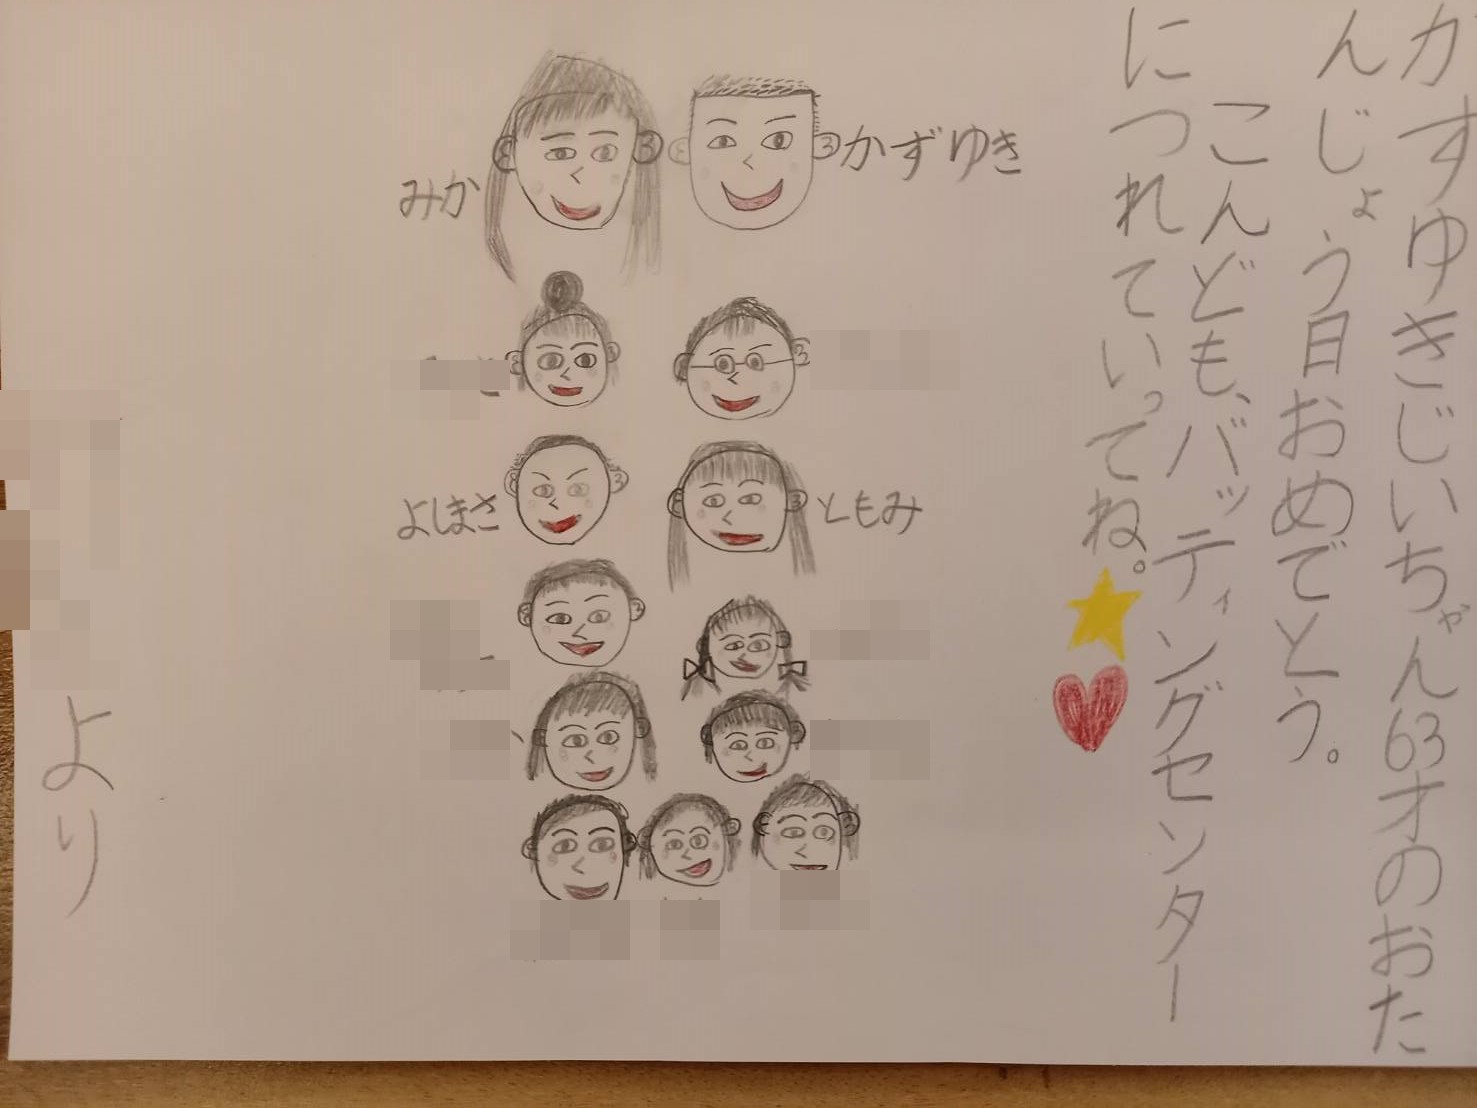 かずゆきじいちゃん63才のおた
んじょう日おめでとう。
こんども、バッティングセンター
につれていってね。
かずゆき
みか
ともみ
よしまさ
より